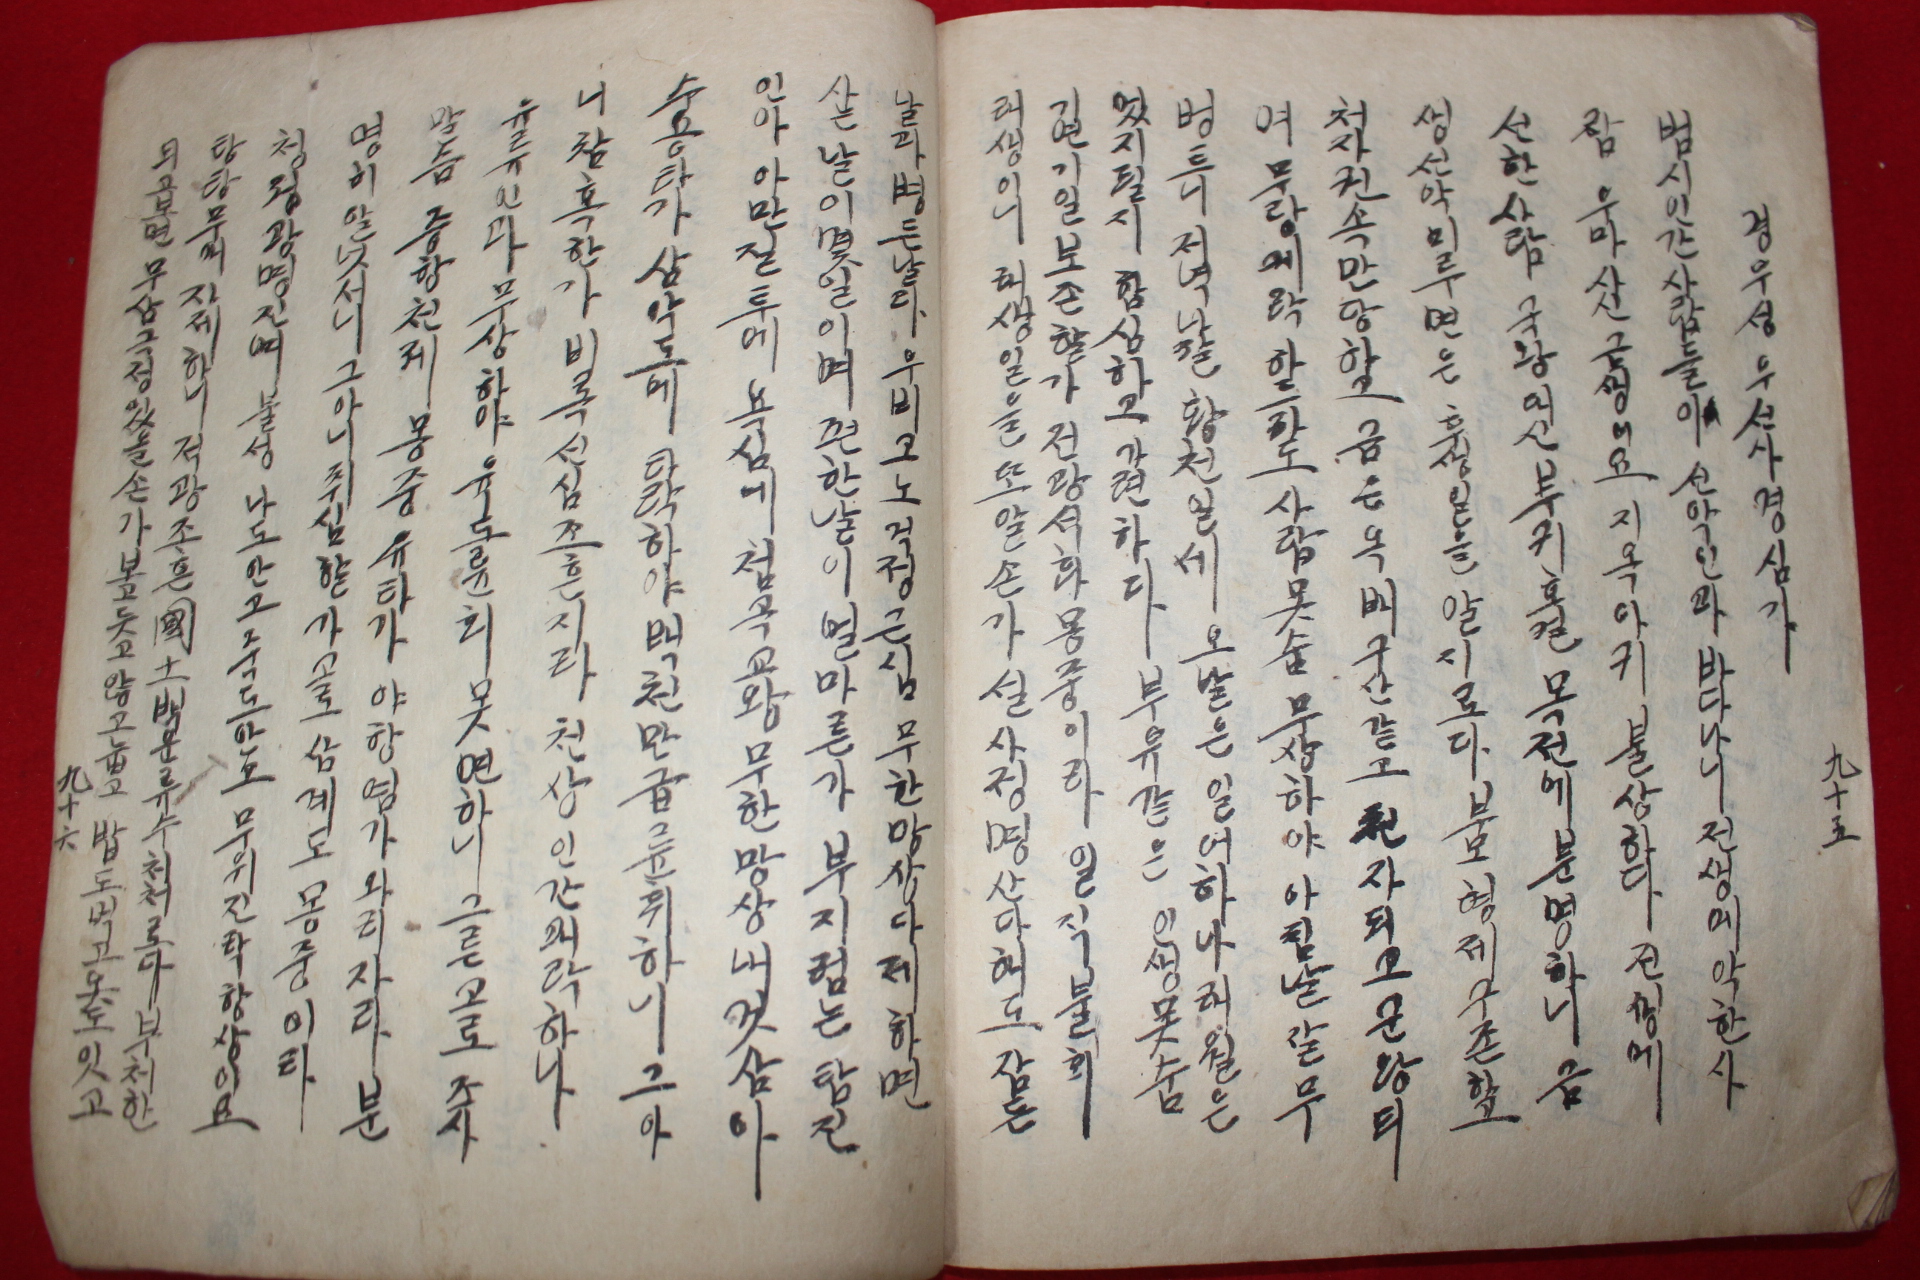 九十五
경우성 우선사 경심가
범시인간사람들이 선악인과 바다나니 전생에 악한사
람 우마 산금생이요 지옥아귀 불상하다 전생에
선한사람 국왕의신 부키호걸 목전에 분명하니 금
생선악 미루면은 후생일을 알지로다 불모형제 구존할고
처자권속 만당할고 금은옥 배 구산같고 천자되고 군왕되
여 무량쾌락 할지라도 사람목숨 무상하야 아침날 잘 무
병트니 저녁나잘 황천일세 오날은 일어하나 래월은
었지될지 함심하고 가련하다 부유같은 인생목숨
긴면기일 보존할가 전광석화 몽중이라 일직불회
래생이니 래생일을 또 알손가 설사정명 산다해도 잠든
날과 병든날라 우비고노 걱정근심 무한망상 다 제하면
산 날이 몇일이며 편한날이 멀마른가 부지럼는 탐진
인아 아만질투에 복심에 첨곡교만 무한망상 내것삼아
수용타가 삼악도에 타락하야 백천만급 륜휘하니 그아
니 참혹한가 비록선심 조흔지라 천상인간 쾌락하나
유루인과 무상하야 육도륜회 못면하니 그른고로 주사
말슴 증항천제 몽중유타가 야항염가 와리자라 분
명히 알넛서니 그아니 취심할가 고로 삼계도 몽중이라
청정광명진에 불성 나도안고 죽도안코 무위진락 항상이요
탕탕무애 자제하니 적광조흔 國土 백운류수 처처로다 부처한
되고보면 무삼극정있늘손가 보고듯고 앉고눕고 밥도먹고 옷도잇고
九十六